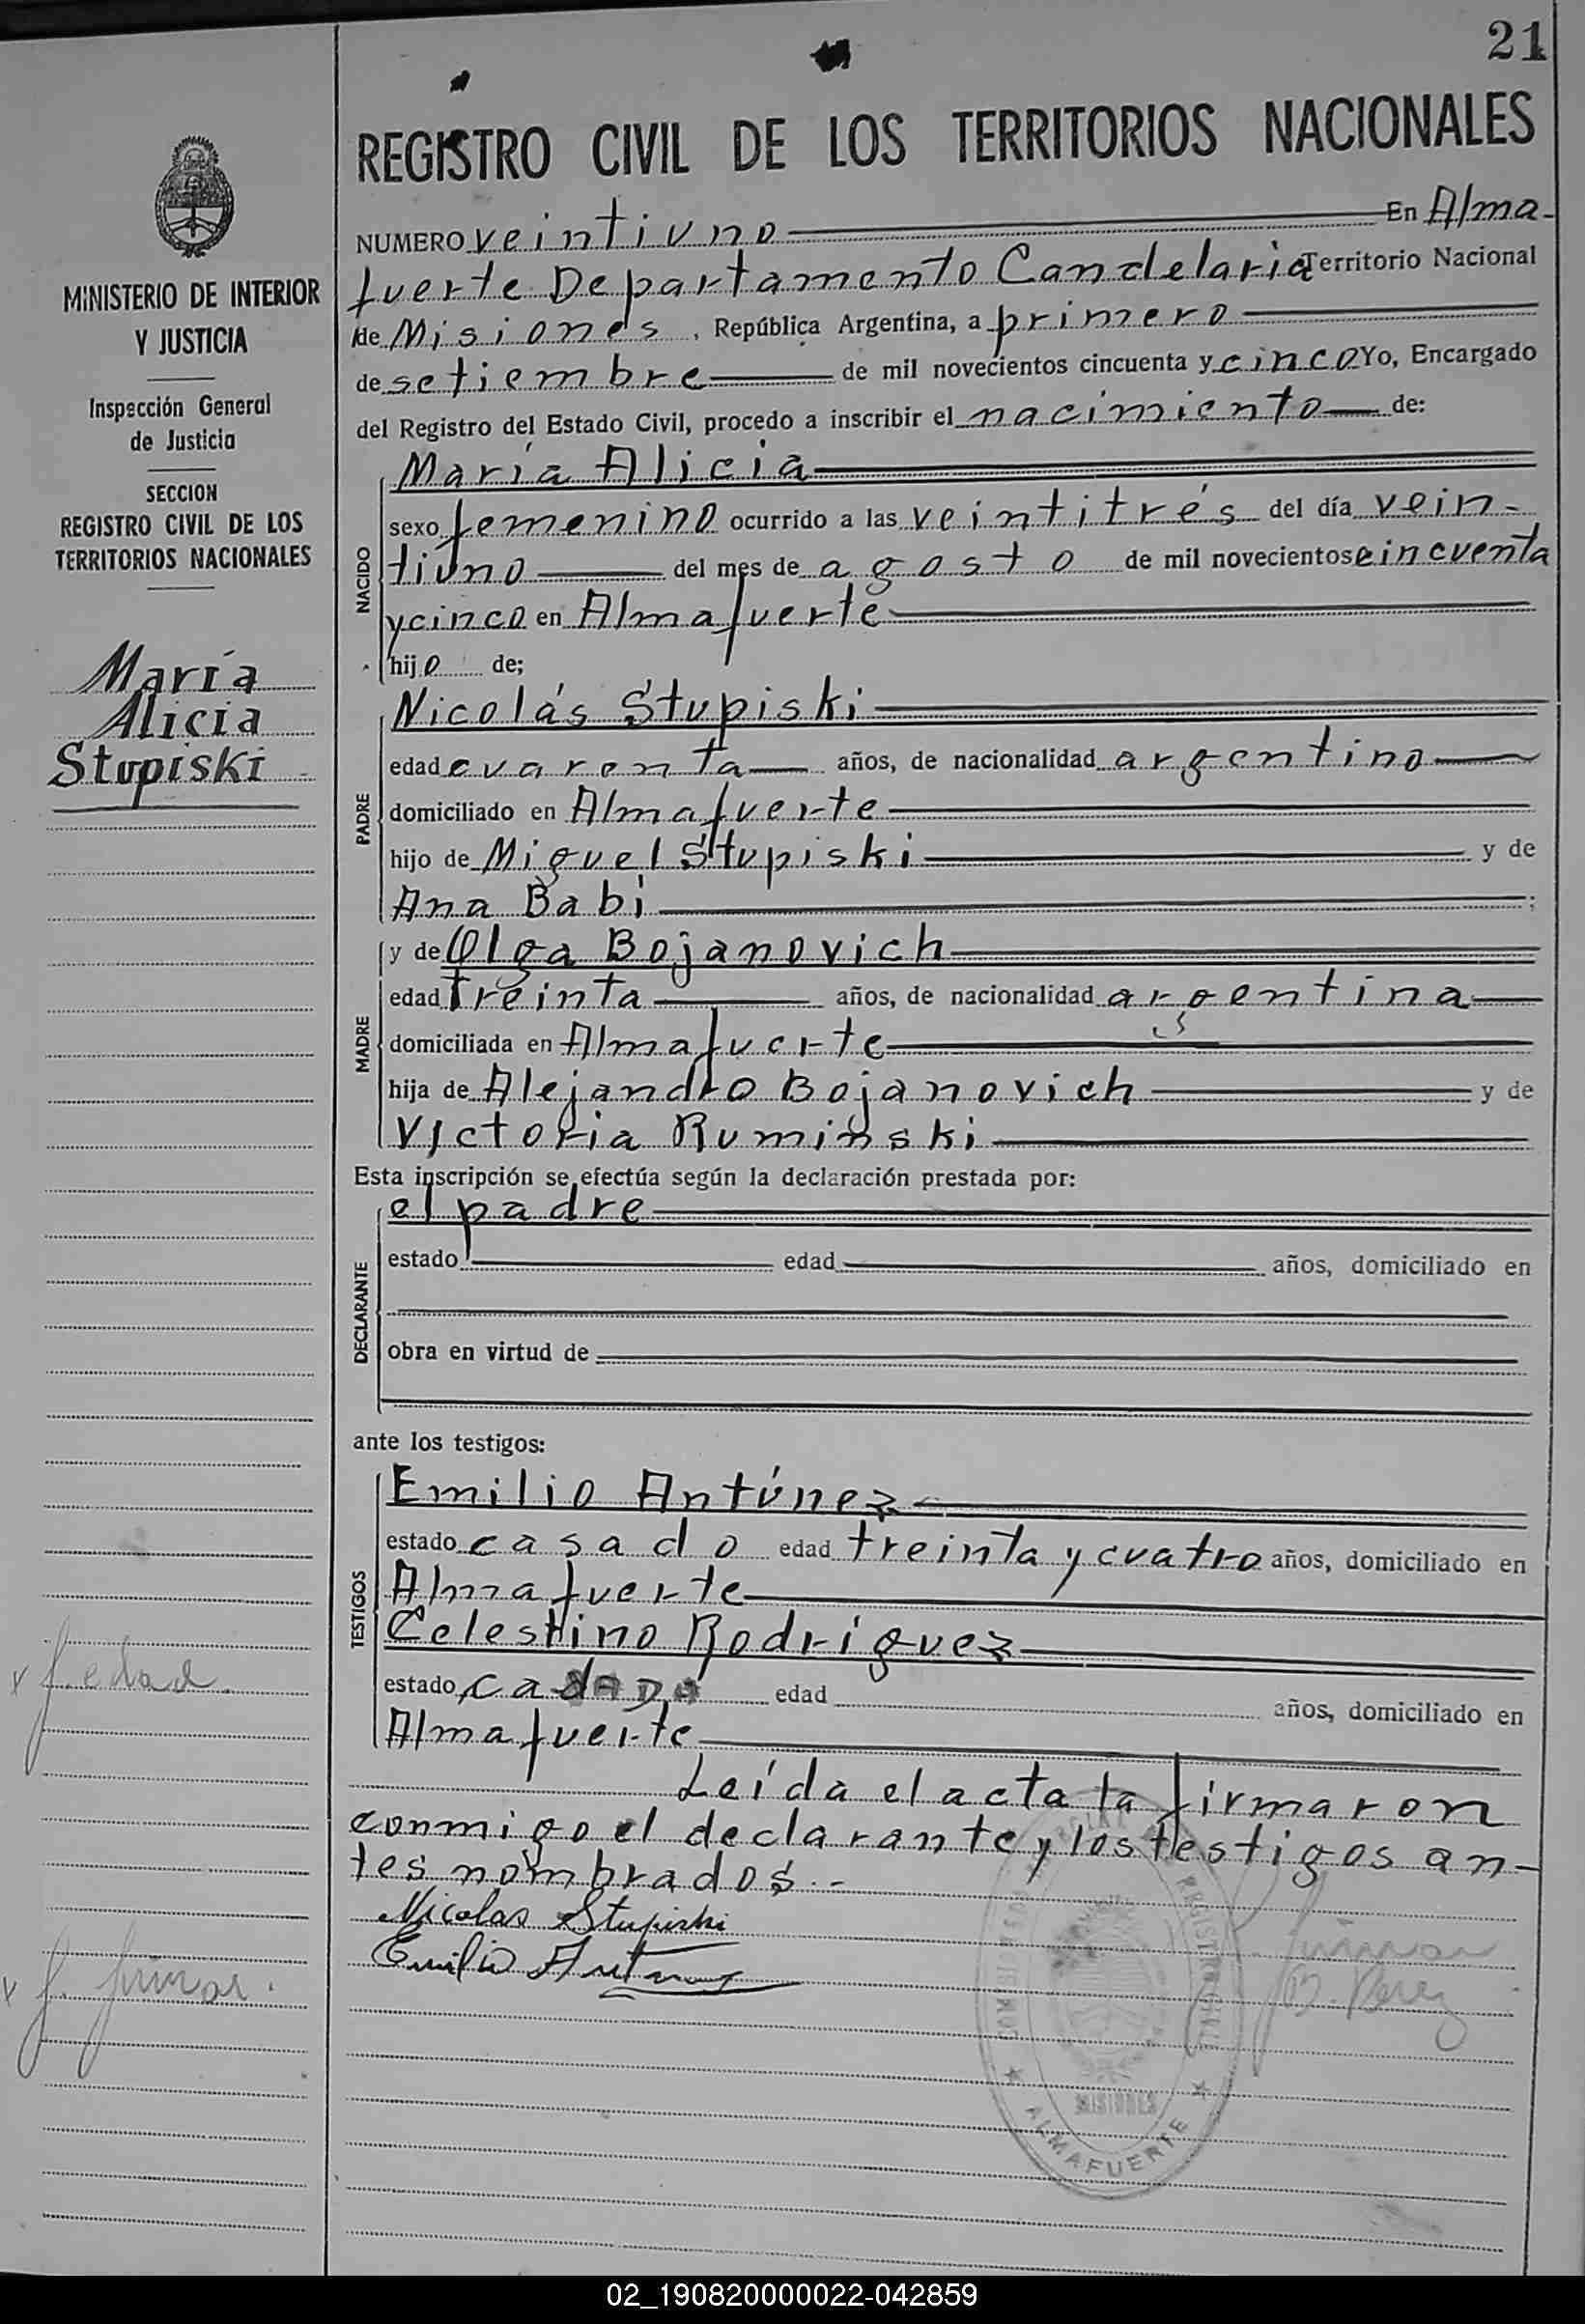 21
REGISTRO CIVIL DE LOS TERRITORIOS NACIONALES
MINISTERIO DE INTERIOR
Y JUSTICIA
Inspección General
de Justicia
SECCION
REGISTRO CIVIL DE LOS
TERRITORIOS NACIONALES
María
Alicia
Stupiski
f. edad.
f. firmar.
NUMERO veintiuno En Alma-
fuerte Departamento Candelaria Territorio Nacional
de Misiones, República Argentina, a primero
de setiembre de mil novecientos cincuenta y cinco Yo, Encargado
del Registro del Estado Civil, procedo a inscribir el nacimiento de:
NACIDO
María Alicia
sexo femenino ocurrido a las veintitrés del día vein-
tiuno del mes de agosto de mil novecientos cincuenta
y cinco en Almafuerte
hijo de;
PADRE
Nicolás Stupiski
edad cuarenta años, de nacionalidad argentino
domiciliado en Almafuerte
hijo de Miguel Stupiski y de
Ana Babi ;
MADRE
y de Olga Bojanovich
edad treinta años, de nacionalidad argentina
domiciliada en Almafuerte
hija de Alejandro Bojanovich y de
Victoria Rumiński
Esta inscripción se efectúa según la declaración prestada por:
DECLARANTE
el padre
estado edad años, domiciliado en
obra en virtud de
ante los testigos:
TESTIGOS
Emilio Antúnez
estado casado edad treinta y cuatro años, domiciliado en
Almafuerte
Celestino Rodríguez
estado casado edad años, domiciliado en
Almafuerte
Leída el acta la firmaron
conmigo el declarante y los testigos an-
tes nombrados.-
Nicolas Stupiski
Emilio Antunez
f. firmar
MISIONES
ALMAFUERTE
02_190820000022-042859